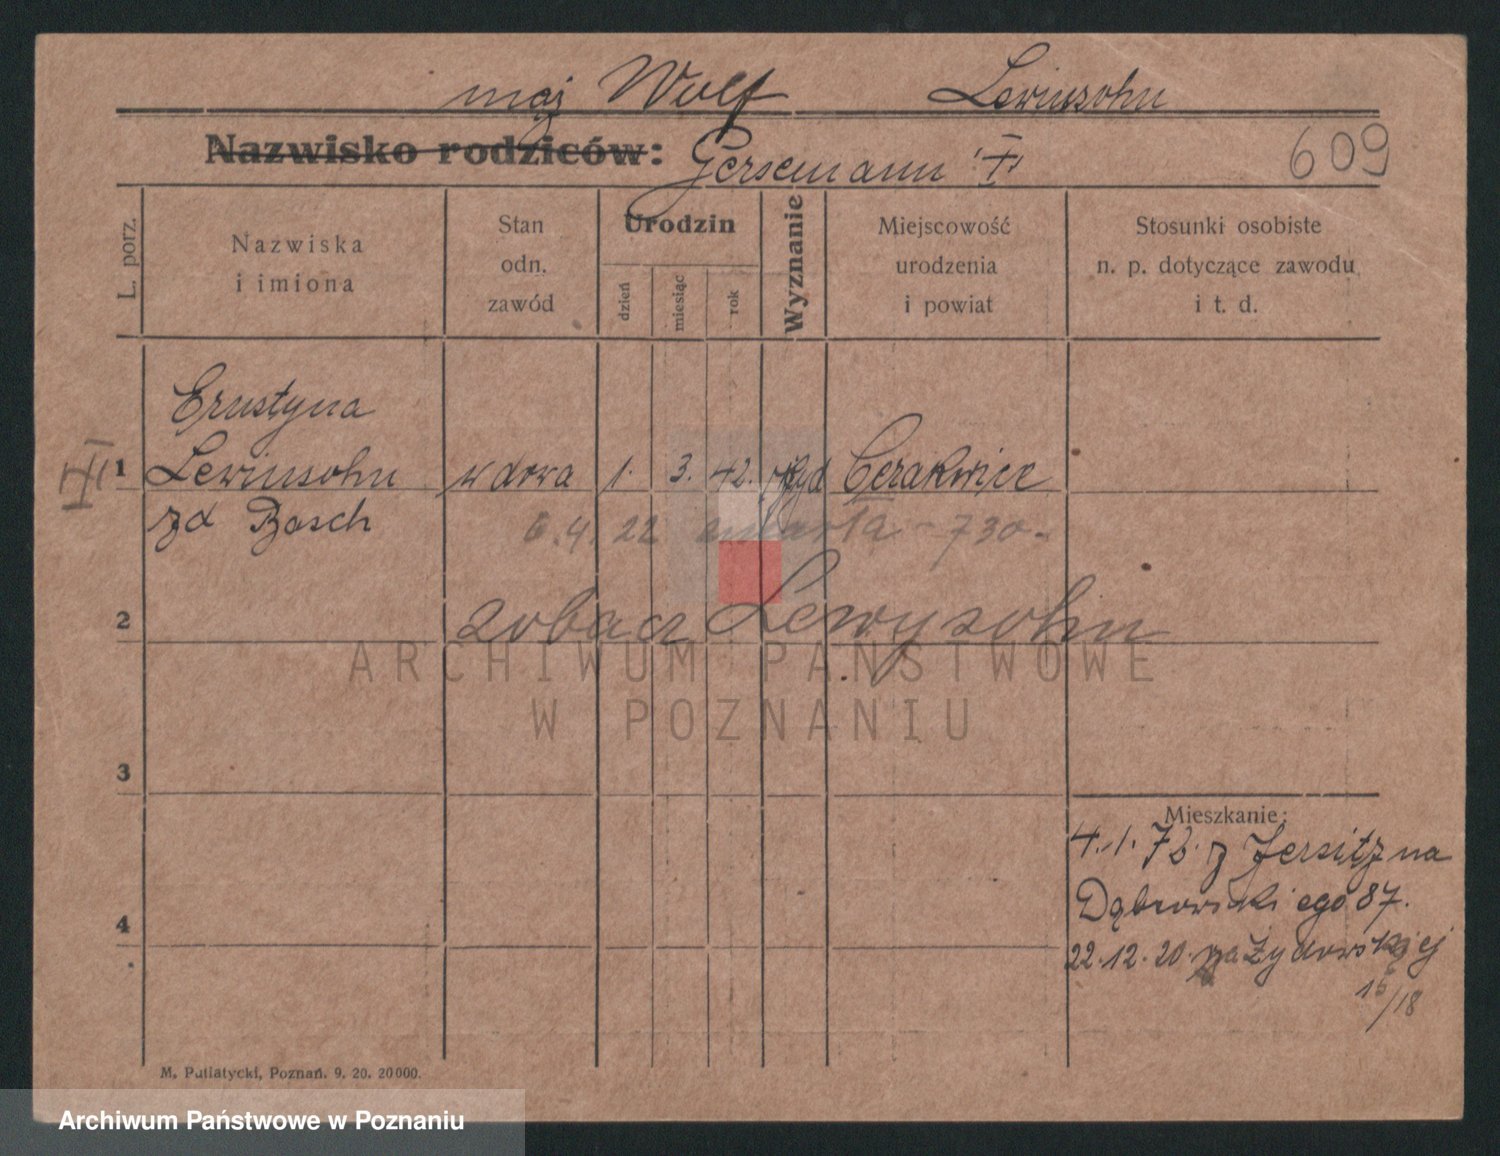 mąż Wolf Lewinsohn
Nazwisko rodziców: Gersemann
609
L. porz.
Nazwiska
i imiona
Stan
odn.
zawód
Urodzin
dzień
miesiąc
rok
Wyznanie
Miejscowość
urodzenia
i powiat
Stosunki osobiste
n. p. dotyczące zawodu
i t. d.
Ernstyna
1 Lewinsohn wdowa 1. 3. 42. żyd Cerakwice
zd Basch
6.4.22 umarła - 730-
2 zobacz Lewysohn
3
Mieszkanie:
4.1.76. z Jersitz na
Dąbrowskiego 87.
4
22.12.20. na Żydowskiej
15/18
M. Putiatycki, Poznań. 9. 20. 20000.
ARCHIWUM PAŃSTWOWE
W POZNANIU
Archiwum Państwowe w Poznaniu